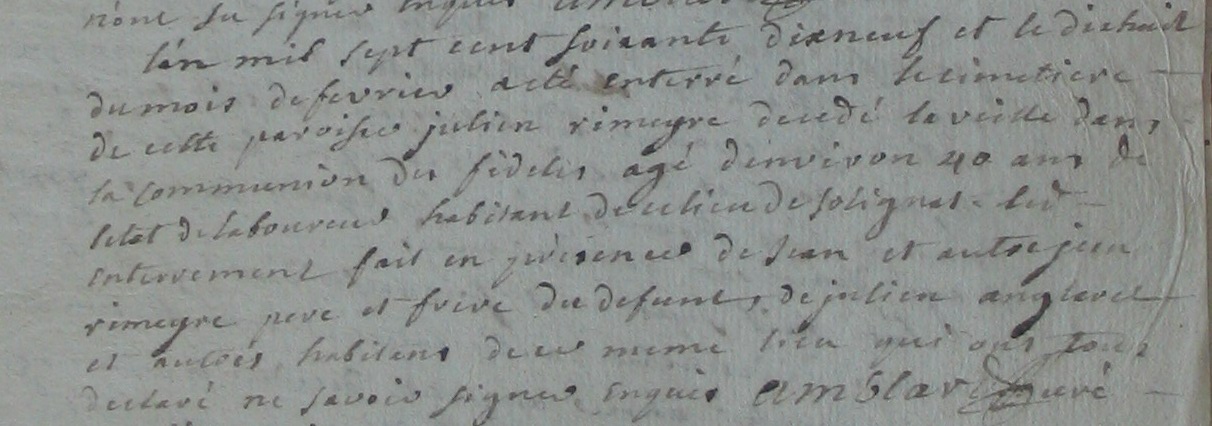 n'ont su signer enquis
l'an mil sept cent soixante dixneuf et le dixhuit
du mois de fevrier a eté enterré dans le cimetiere
de cette paroisse julien rimeyre decedé la veille dans
la communion des fideles agé denviron 40 ans de
letat de laboureur habitant de ce lieu de solignat led
enterrement fait en presence de jean et autre jean
rimeyre pere et frere du defunt, de julien anglaret
et autres habitans de ce meme lieu qui ont tous
declaré ne savoir signer enquis amblard curé